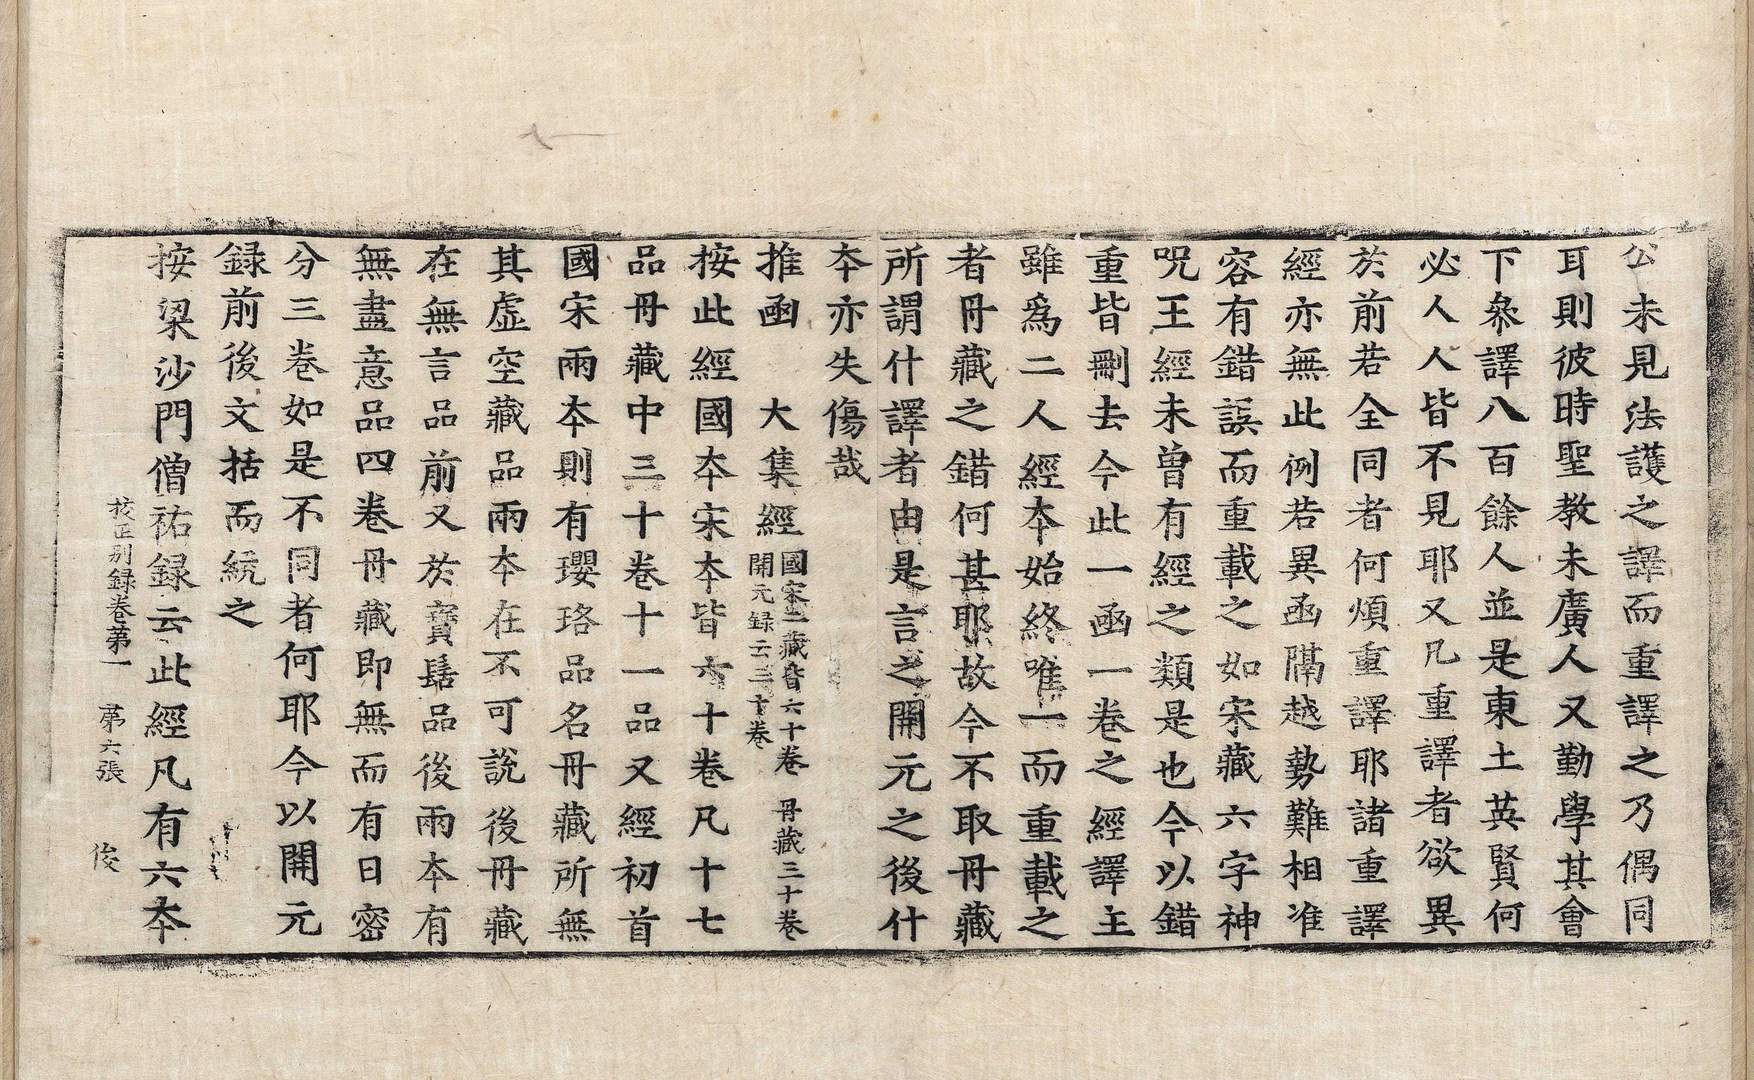 公未見法護之譯而重譯之乃偶同
耳則彼時聖教未廣人又勤學其會
下叅譯八百餘人並是東土英賢何
必人人皆不見耶又凡重譯者欲異
於前若全同者何煩重譯耶諸重譯
經亦無此例若異函隔越勢難相准
容有錯誤而重載之如宋藏六字神
呪王經未曾有經之類是也今以錯
重皆刪去今此一函一卷之經譯主
雖爲二人經夲始終唯一而重載之
者丹藏之錯何甚耶故今不取丹藏
所謂什譯者由是言之開元之後什
夲亦失傷哉
推函　大集經國宋二藏皆六十卷　丹藏三十卷
開元録云三十卷
按此經國夲宋夲皆六十卷凡十七
品丹藏中三十卷十一品又經初首
國宋兩夲則有瓔珞品名丹藏所無
其虛空藏品兩夲在不可說後丹藏
在無言品前又於寶髻品後兩夲有
無盡意品四卷丹藏即無而有日密
分三卷如是不同者何耶今以開元
録前後文括而統之
按梁沙門僧祐録云此經凡有六夲
校正別録卷第一　第六張　俊